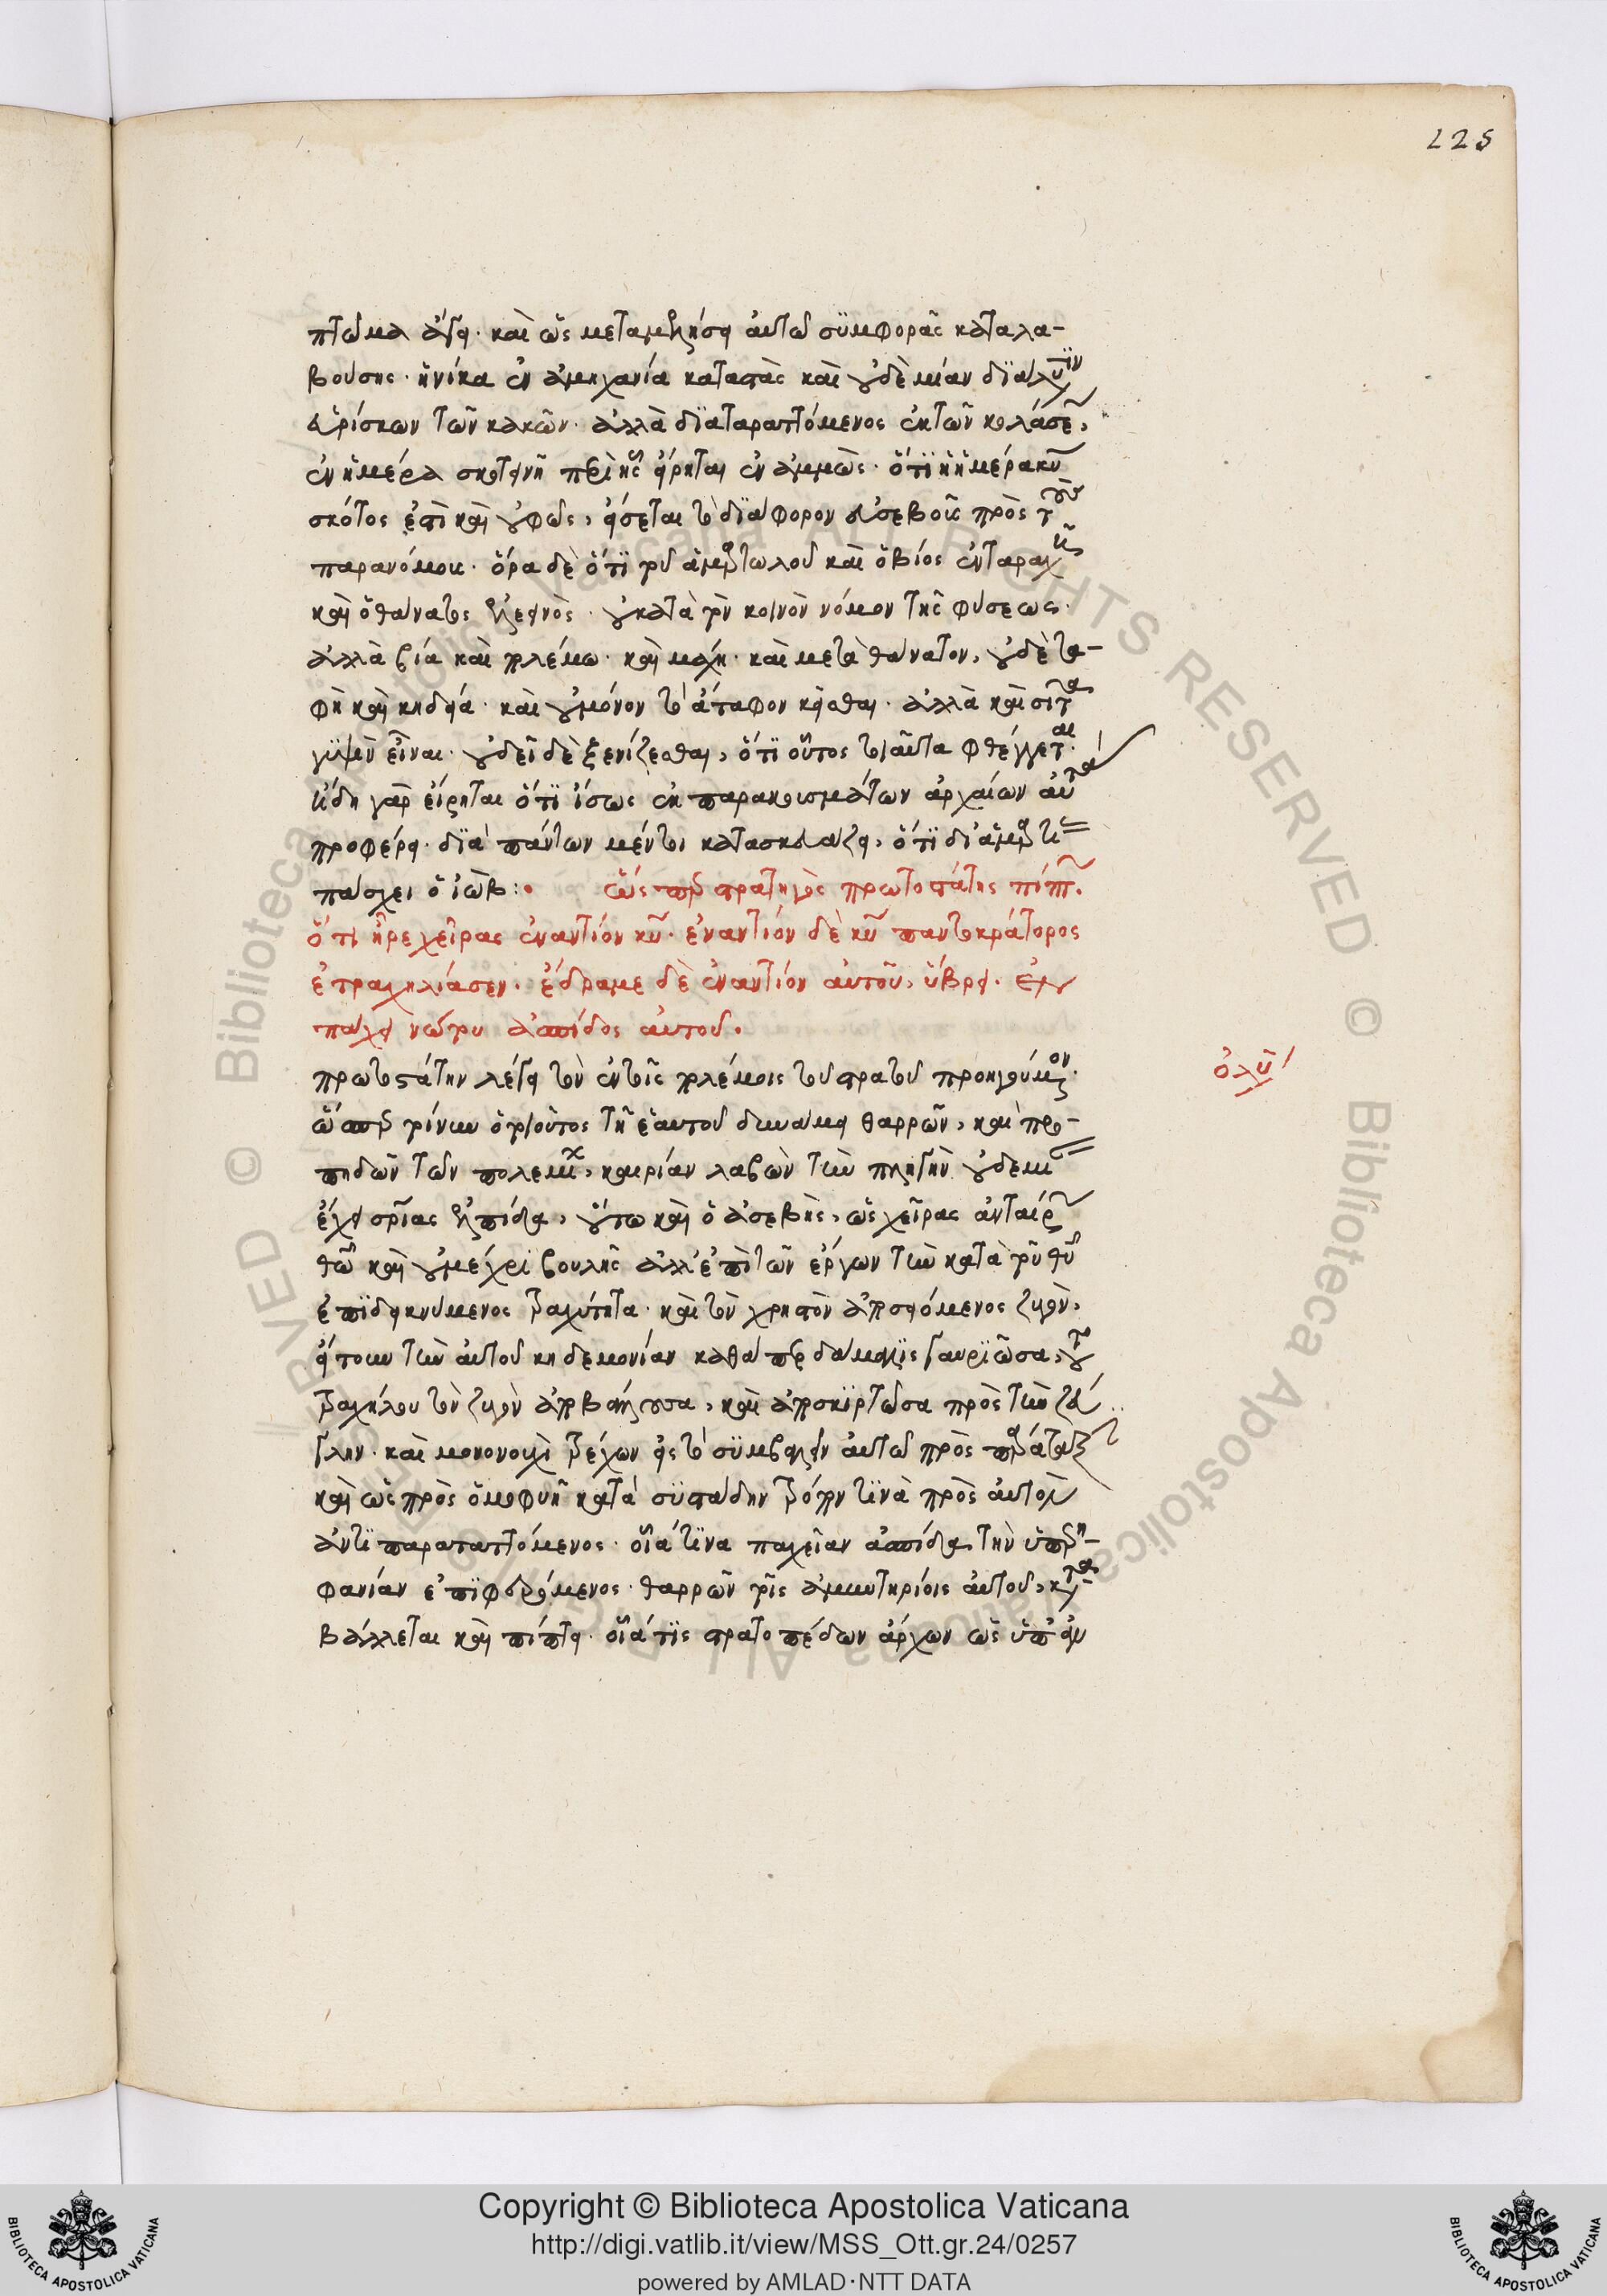 225
πτῶμα ἄγει. καὶ ὡς μεταμελήσει αὐτῶ συμφορᾶς καταλα-
βούσης. ἡνίκα ἐν ἀμηχανία καταστὰς καὶ οὐδὲ μίαν διάλυσιν
εὑρίσκων τῶν κακῶν. ἀλλὰ διαταραττόμενος ἐκ τῶν κολάσεων,
ἐν ἡμέρα σκοτεινῆ περὶ ἧς εἴρηται ἐν ἀμμὼς. ὅτι ἡ ἡμέρα κυ
σκότος ἐστὶ καὶ οὐ φῶς, εἴσεται τὸ διάφορον εὐσεβοῦς πρὸς τοὺς
παρανόμους. ὅρα δὲ ὅτι τοῦ ἁμαρτωλοῦ καὶ ὁ βίος ἐν ταραχῆ
καὶ ὁ θάνατος ἐλεεινὸς. οὐ κατὰ τὸν κοινὸν νόμον τῆς φύσεως.
ἀλλὰ βία καὶ πολέμω. καὶ μάχη. καὶ μετὰ θάνατον, οὐδὲ τα-
φὴ καὶ κηδεία. καὶ οὐ μόνον τὸ ἄταφον κεῖσθαι. ἀλλὰ καὶ σῖτα
γυψὶν εἶναι. οὐ δεῖ δὲ ξενίζεσθαι, ὅτι οὗτος τοιαῦτα φθέγγεται.
ἤδη γὰρ εἴρηται ὅτι ἴσως ἐκ παρακουσμάτων ἀρχαίων αὐτὰ
προφέρει. διὰ πάντων μέντοι κατασκευάζει, ὅτι δι' ἁμαρτίας
πάσχει ὁ ἰὼβ: ὥσπερ στρατηγὸς πρωτοστάτης πίπτων.
ὅτι ἦρε χεῖρας ἐναντίον κυ. ἐναντίον δὲ κυ παντοκράτορος
ἐτραχηλίασεν. ἔδραμε δὲ ἐναντίον αὐτοῦ, ὕβρει. ἐν
πάχει νώτου ἀσπίδος αὐτοῦ.
πρωτοστάτην λέγει τὸν ἐν τοῖς πολέμοις τοῦ στρατοῦ προηγούμενον.
ὥσπερ τοίνυν ὁ τοιοῦτος τῆ ἑαυτοῦ δυνάμει θαρρῶν, καὶ προ-
πηδῶν τῶν πολεμικῶν, καιρίαν λαβὼν τὴν πληγὴν οὐδεμίαν
ἔχει σρίας ἐλπίδα, οὕτω καὶ ὁ ἀσεβὴς, ὡς χεῖρας ἀνταίρων
θῶ καὶ οὐ μέχρι βουλῆς ἀλλ' ἐπὶ τῶν ἔργων τὴν κατὰ τοῦ θυ
ἐπιδεικνύμενος τραχύτητα. καὶ τὸν χρηστὸν ἀποσειόμενος ζυγὸν,
εἴτουν τὴν αὐτοῦ κηδεμονίαν καθάπερ δάμαλις γαυριῶσα, τοῦ
τραχήλου τὸν ζυγὸν ἀποβάλλουσα, καὶ ἀποσκιρτῶσα πρὸς τὴν ζεύ
γλην. καὶ μονονουχὶ τρέχων εἰς τὸ συμβαλεῖν αὐτῶ πρὸς παράταξιν
καὶ ὡς πρὸς ὁμοφυῆ κατὰ συστάδην τρόπον τινὰ πρὸς αὐτὸν
ἀντιπαραταττόμενος. οἷά τινα παχεῖαν ἀσπίδα τὴν ὑπερη-
φανίαν ἐπιφερόμενος. θαρρῶν τοῖς ἀμυντηρίοις αὐτοῦ, κατα
βάλλεται καὶ πίπτει. οἷά τις στρατοπέδων ἄρχων ὡς ὑπ' οὐ
ὀλυ
Copyright © Biblioteca Apostolica Vaticana
http://digi.vatlib.it/view/MSS_Ott.gr.24/0257
powered by AMLAD·NTT DATA